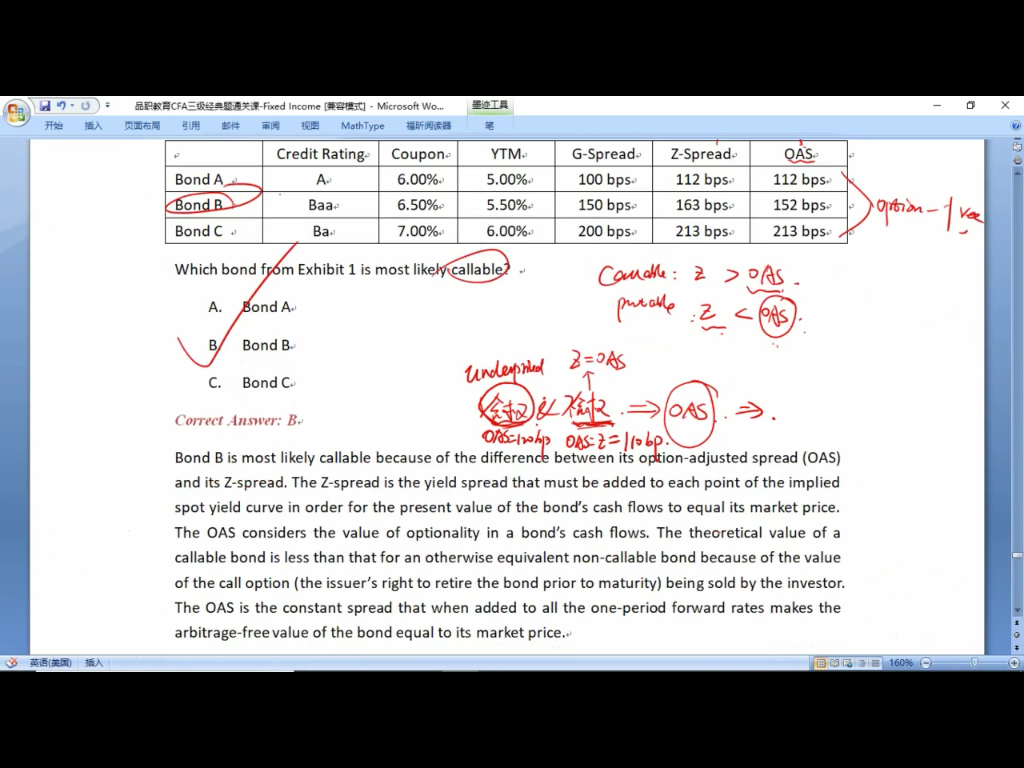 品职教育CFA三级经典题通关课-Fixed Income [兼容模式] - Microsoft Wo...
墨迹工具
开始 插入 页面布局 引用 邮件 审阅 视图 MathType 福昕阅读器 笔
Credit Rating Coupon YTM G-Spread Z-Spread OAS
Bond A A 6.00% 5.00% 100 bps 112 bps 112 bps
Bond B Baa 6.50% 5.50% 150 bps 163 bps 152 bps
Bond C Ba 7.00% 6.00% 200 bps 213 bps 213 bps
option-free
Which bond from Exhibit 1 is most likely callable?
Callable: Z > OAS.
A. Bond A
putable: Z < OAS.
B. Bond B
Z=OAS
underpriced
C. Bond C
含权 & 不含权 ⇒ OAS ⇒
OAS=120bp OAS=Z=110bp.
Correct Answer: B
Bond B is most likely callable because of the difference between its option-adjusted spread (OAS)
and its Z-spread. The Z-spread is the yield spread that must be added to each point of the implied
spot yield curve in order for the present value of the bond's cash flows to equal its market price.
The OAS considers the value of optionality in a bond's cash flows. The theoretical value of a
callable bond is less than that for an otherwise equivalent non-callable bond because of the value
of the call option (the issuer's right to retire the bond prior to maturity) being sold by the investor.
The OAS is the constant spread that when added to all the one-period forward rates makes the
arbitrage-free value of the bond equal to its market price.
英语(美国) 插入 160%